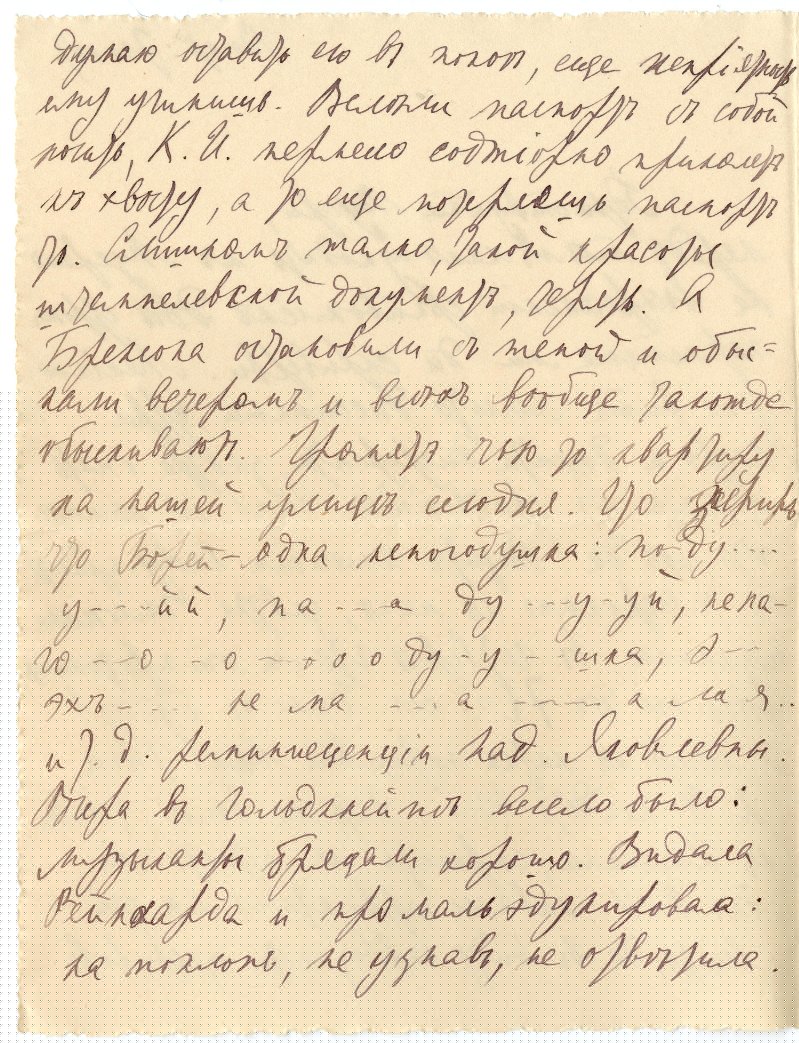 думаю оставить его въ покоѣ, еще непрiятность
ему учинишь. Велѣли паспортъ съ собой
носить, К. И. нервно соджiорно приколетъ
къ хвосту, а то еще потеряешь паспортъ
то. Слишкомъ жалко, такой красоты
штемпелевской документъ, терять. А
Бренсона остановили съ женой и обыс=
кали вечеромъ и всѣхъ вообще также
обыскиваютъ. Громятъ чью то квартиру
на нашей улицѣ сегодня. Что
что Борей – одна непогодушка: по ду....
у---ий, па---а ду---у-уй, непа-
го---о--о----о о о ду-у---шка, э---
эхъ---- не ма---а-----а лая..
и т. д. реминисценцiи Над. Яковлевны.
Вчера въ Гольдкнейпѣ весело было:
музыканты бредали хорошо. Видала
Рейнхарда и промальэдукировала:
на поклонъ, не узнавъ, не отвѣтила.